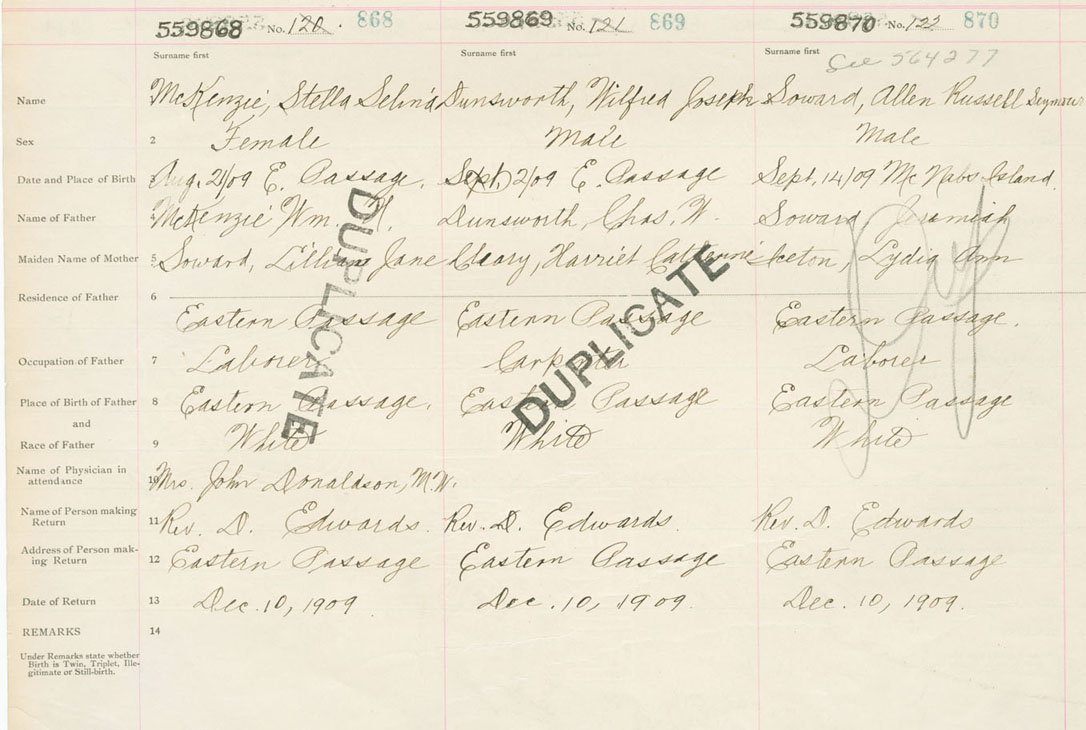 559868 No. 120. 868 559869 No. 121 869 559870 No. 122 870
Surname first Surname first Surname first See 564277
Name McKenzie, Stella Selina Dunsworth, Wilfred Joseph Soward, Allen Russell Seymour
Sex 2 Female Male Male
Date and Place of Birth 3 Aug. 21/09 E. Passage. Sept. 2/09 E. Passage Sept. 14/09 McNabs Island.
Name of Father 4 McKenzie Wm. H. Dunsworth, Chas. W. Soward Jeramiah
Maiden Name of Mother 5 Soward, Lillian Jane Cleary, Harriet Catherine Iceton, Lydia Ann
Residence of Father 6
Eastern Passage Eastern Passage Eastern Passage.
Occupation of Father 7 Laborer Carpenter Laborer
Place of Birth of Father 8 Eastern Passage. Eastern Passage Eastern Passage
and
Race of Father 9 White White White
Name of Physician in
attendance 10 Mrs. John Donaldson, M.W.
Name of Person making
Return 11 Rev. D. Edwards. Rev. D. Edwards. Rev. D. Edwards
Address of Person mak-
ing Return 12 Eastern Passage Eastern Passage Eastern Passage
Date of Return 13 Dec. 10, 1909 Dec. 10, 1909. Dec. 10, 1909.
REMARKS 14
Under Remarks state whether
Birth is Twin, Triplet, Ille-
gitimate or Still-birth.
DUPLICATE
DUPLICATE